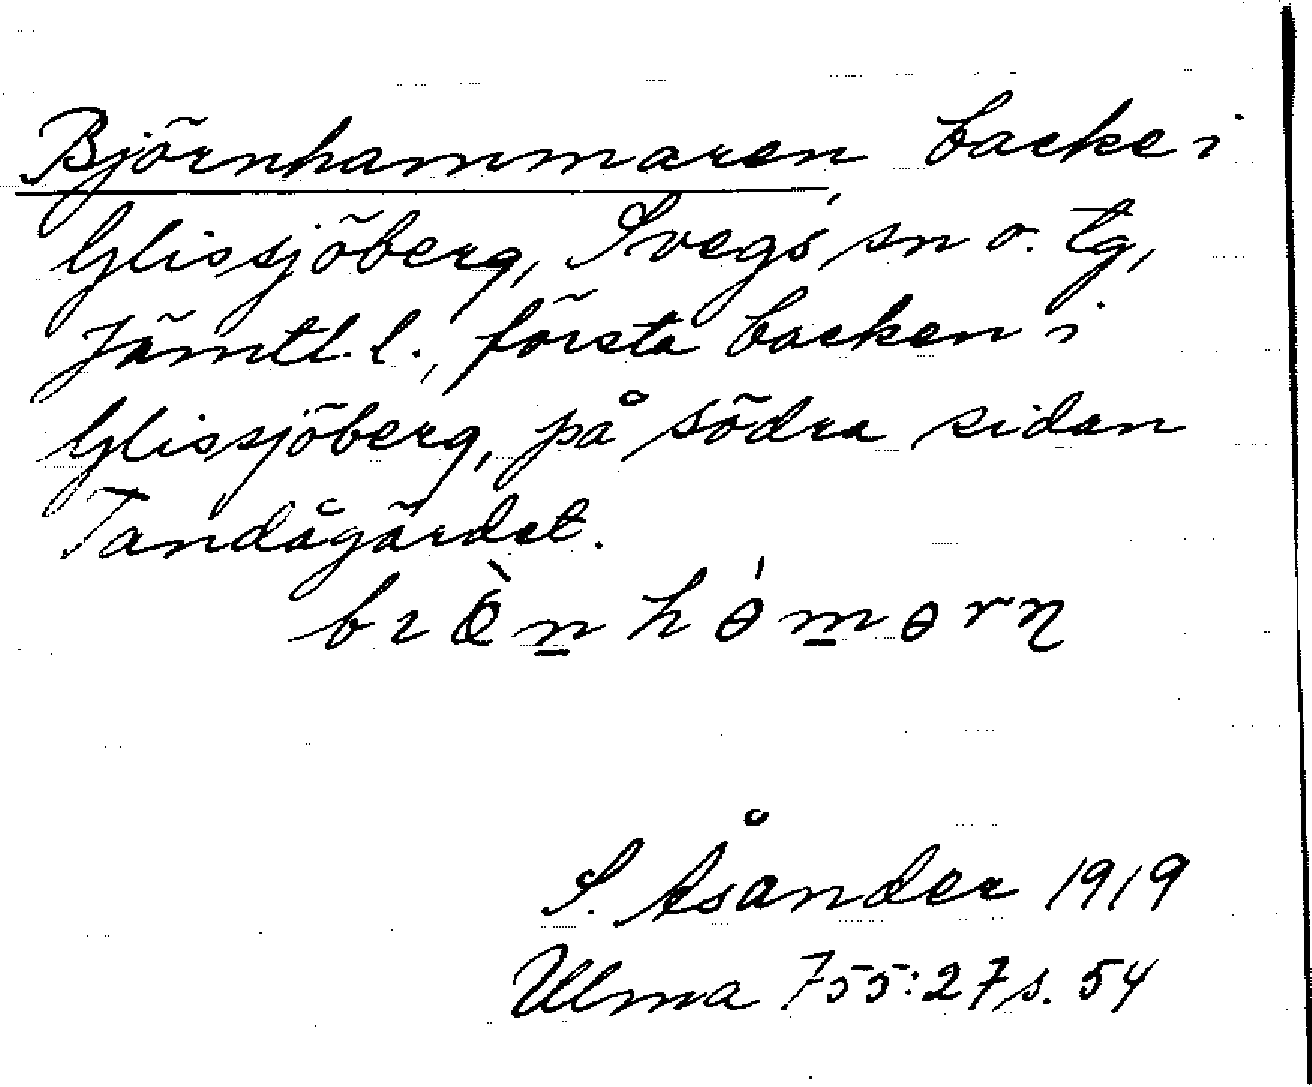 Björnhammaren, backe i
Glissjöberg, Svegs sn o. tg,
Jämtl. l., första backen i
Glissjöberg, på södra sidan
Tandågärdet.
S. Åsander 1919
Ulma 755:27 s. 54